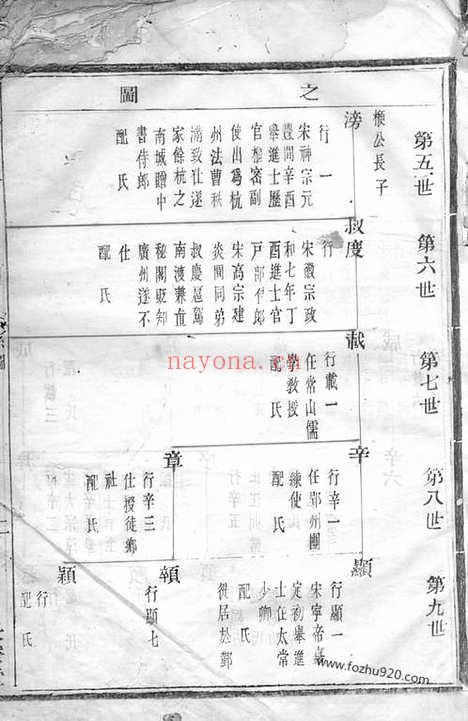 之圖
第五世
第六世
第七世
第八世
第九世
檄公長子
滂
行一
宋神宗元
豐間辛酉
舉進士歷
官樞密副
使出爲杭
州法曹秩
滿致仕遂
家餘杭之
南城贈中
書侍郎
配氏
叔度
行一
宋徽宗政
和七年丁
酉進士官
戸部侍郎
宋高宗建
炎間同弟
叔慶扈駕
南渡兼直
秘閣疏知
廣州遂不
仕
配氏
載
行載一
任常山儒
學教授
配氏
辛
行辛一
任鄞州團
練使
配氏
章
行辛三
仕授徒鄉
社
配氏
顯
行顯一
宋寧帝嘉
定初舉進
士任太常
少卿
配氏
從居於鄞
顯七
行
配氏
nayona.cn
www.fozhu920.com